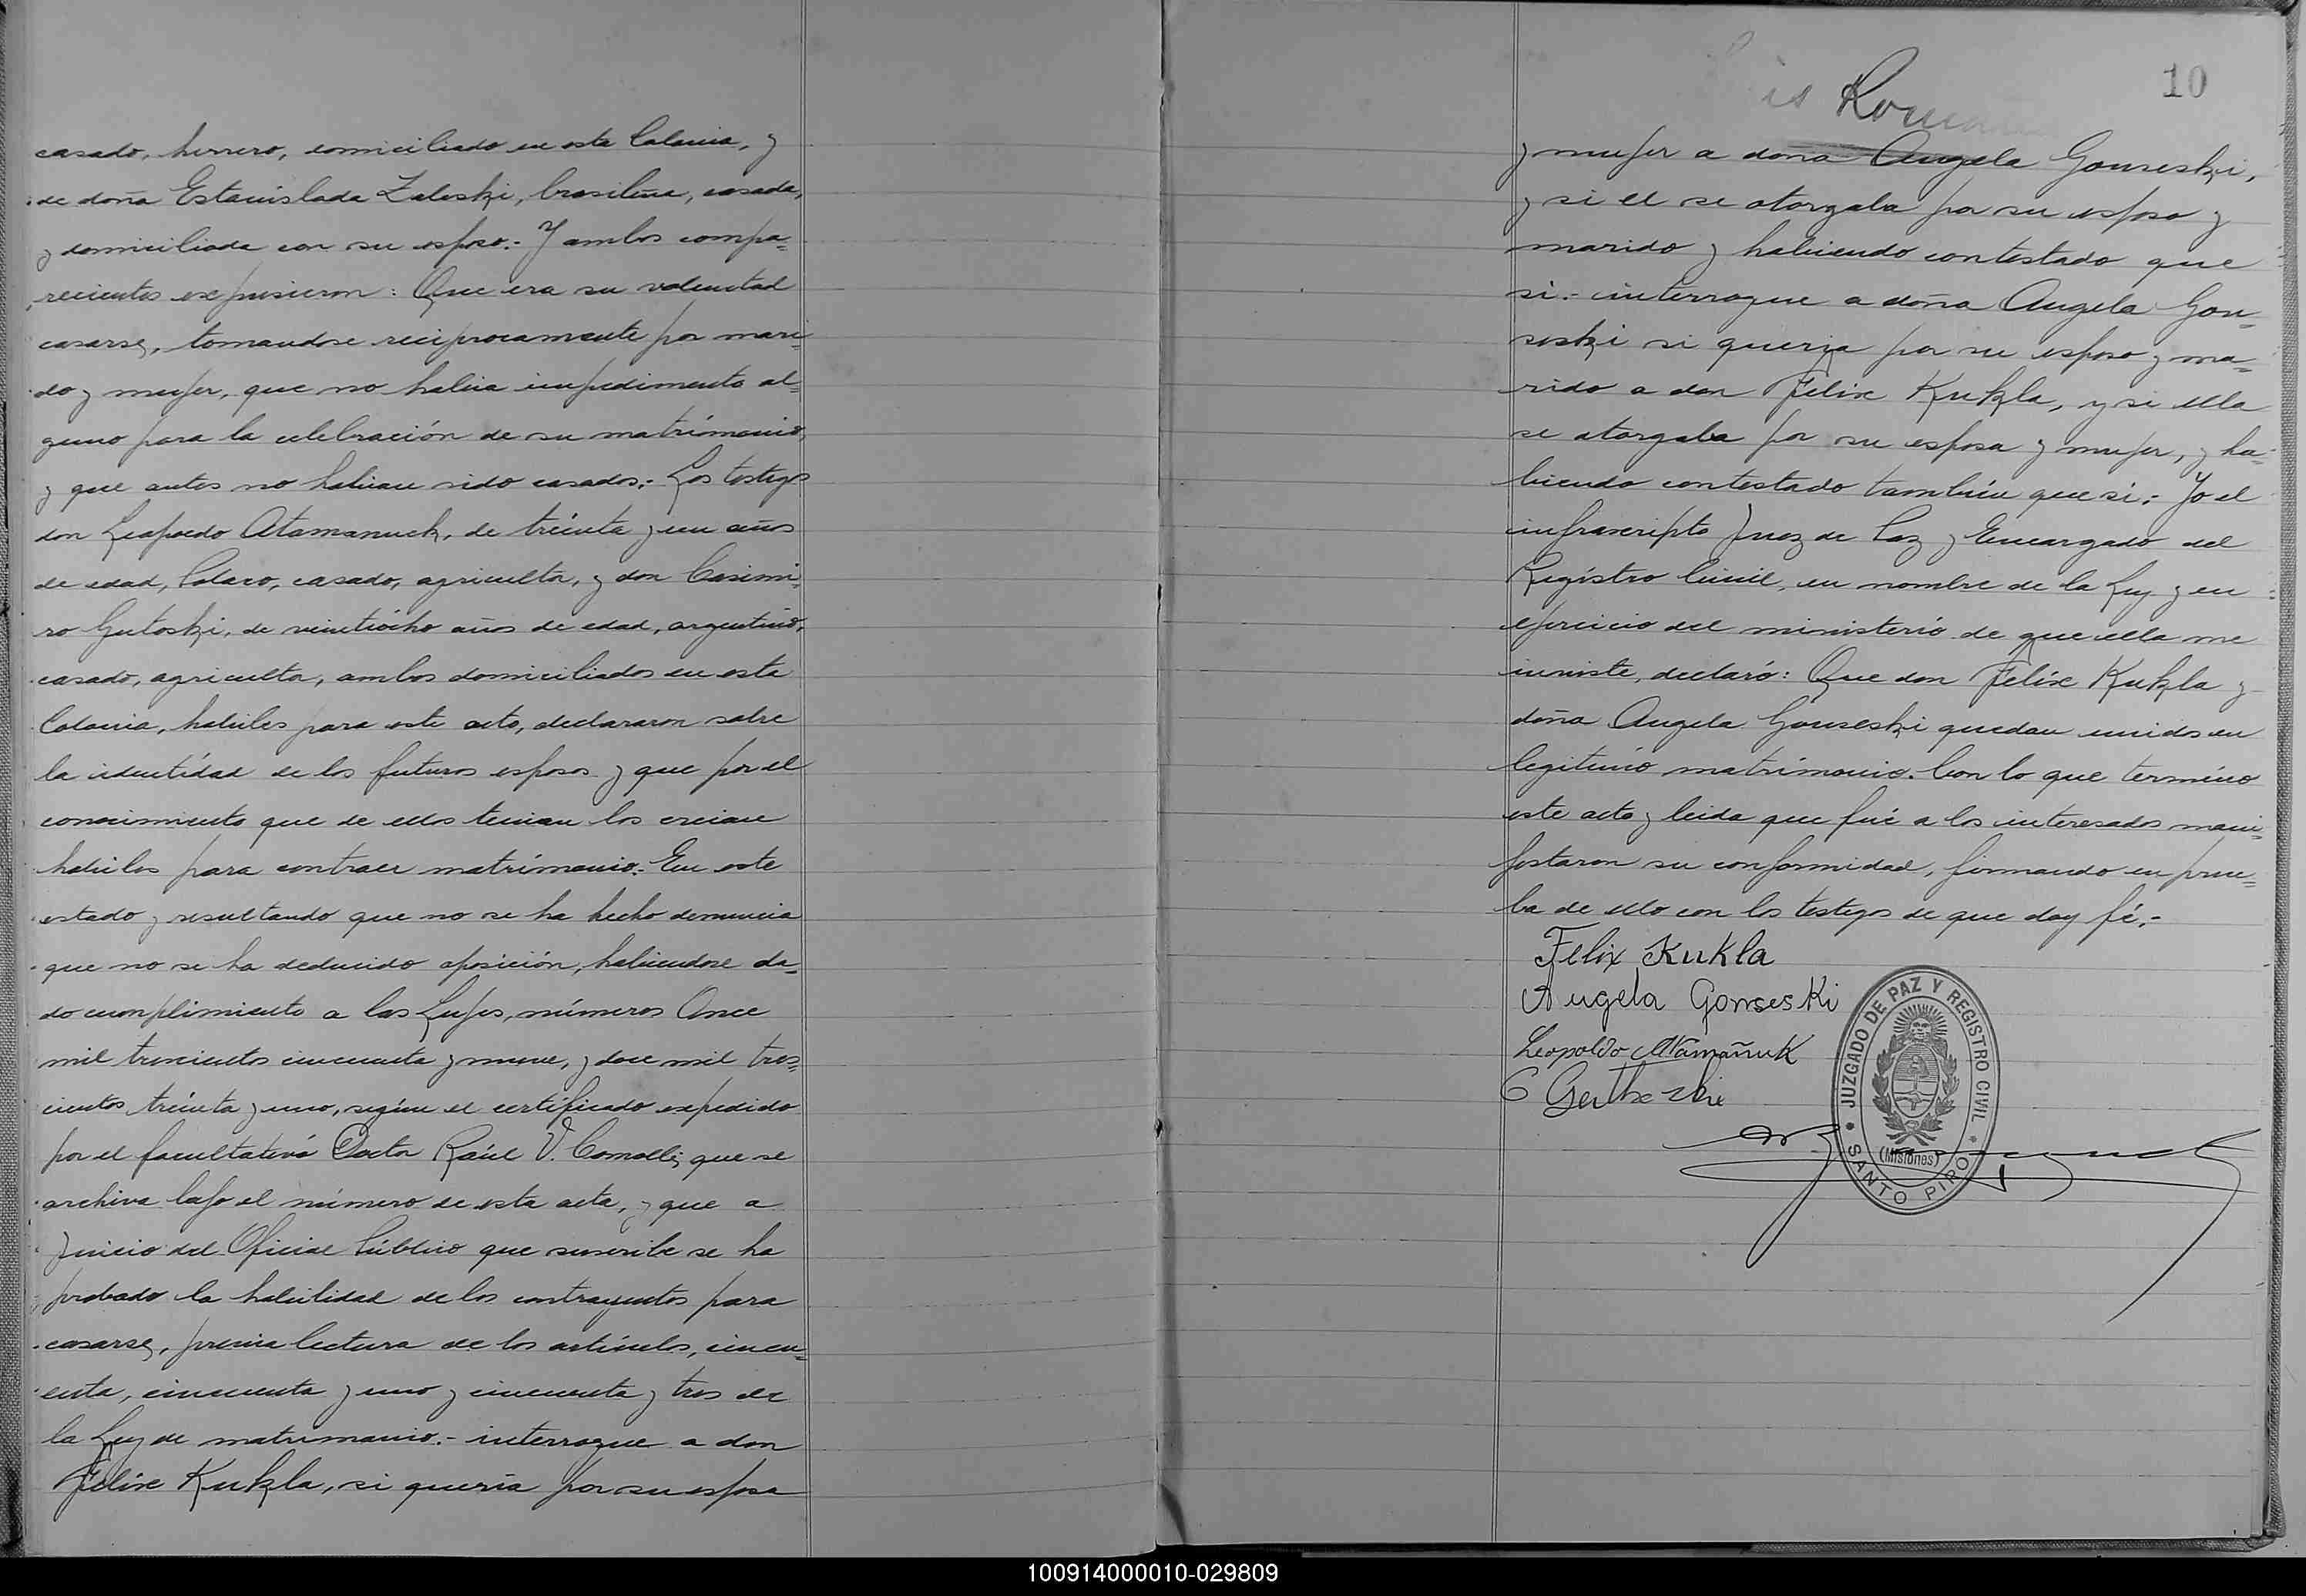 casado, herrero, domiciliado en esta Colonia, y
de doña Estanislada Zaleski, brasileña, casada,
y domiciliada con su esposo.- Y ambos compa=
recientes expusieron: Que era su voluntad
casarse, tomandose reciprocamente por mari=
do y mujer, que no habia impedimento al=
guno para la celebración de su matrimonio,
y que antes no habian sido casados.- Los testigos
don Leopoldo Atamanuck, de treinta y un años
de edad, Polaco, casado, agricultor, y don Casimi=
ro Gutoski, de veintiocho años de edad, argentino,
casado, agricultor, ambos domiciliados en esta
Colonia, habiles para este acto, declararon sobre
la identidad de los futuros esposos y que por el
conocimiento que de ellos tenian los creian
habiles para contraer matrimonio.- En este
estado y resultando que no se ha hecho denuncia
que no se ha deducido oposición, habiendose da=
do cumplimiento a las Leyes, números Once
mil trescientos cincuenta y nueve, y doce mil tres=
cientos treinta y uno, según el certificado expedido
por el facultativo Doctor Raúl V. Comolli, que se
archiva bajo el número de esta acta, y que a
Juicio del Oficial Público que suscribe se ha
probado la habilidad de los contrayentes para
casarse, previa lectura de los artículos, cincu=
enta, cincuenta y uno y cincuenta y tres de
la Ley de matrimonio.- interrogue a don
Felix Kukla, si queria por su esposa
10
is Roman
y mujer a doña Angela Gonseski,
y si el se otorgaba por su esposo y
marido y habiendo contestado que
si.- interrogue a doña Angela Gon=
seski si queria por su esposo y ma=
rido a don Felix Kukla, y si ella
se otorgaba por su esposa y mujer, y ha=
biendo contestado también que si.- Yo el
infrascripto Juez de Paz y Encargado del
Registro Civil, en nombre de la Ley y en
ejercicio del ministerio de que ella me
inviste, declaró: Que don Felix Kukla y
doña Angela Gonseski quedan unidos en
legitimo matrimonio. Con lo que terminó
este acto y leida que fué a los interesados mani=
festaron su conformidad, firmando en prue=
ba de ello con los testigos de que doy fé.-
Felix Kukla
Angela Gonseski
Leopoldo Atamañuk
JUZGADO DE PAZ Y REGISTRO CIVIL
(Misiones)
SANTO PIPO
100914000010-029809